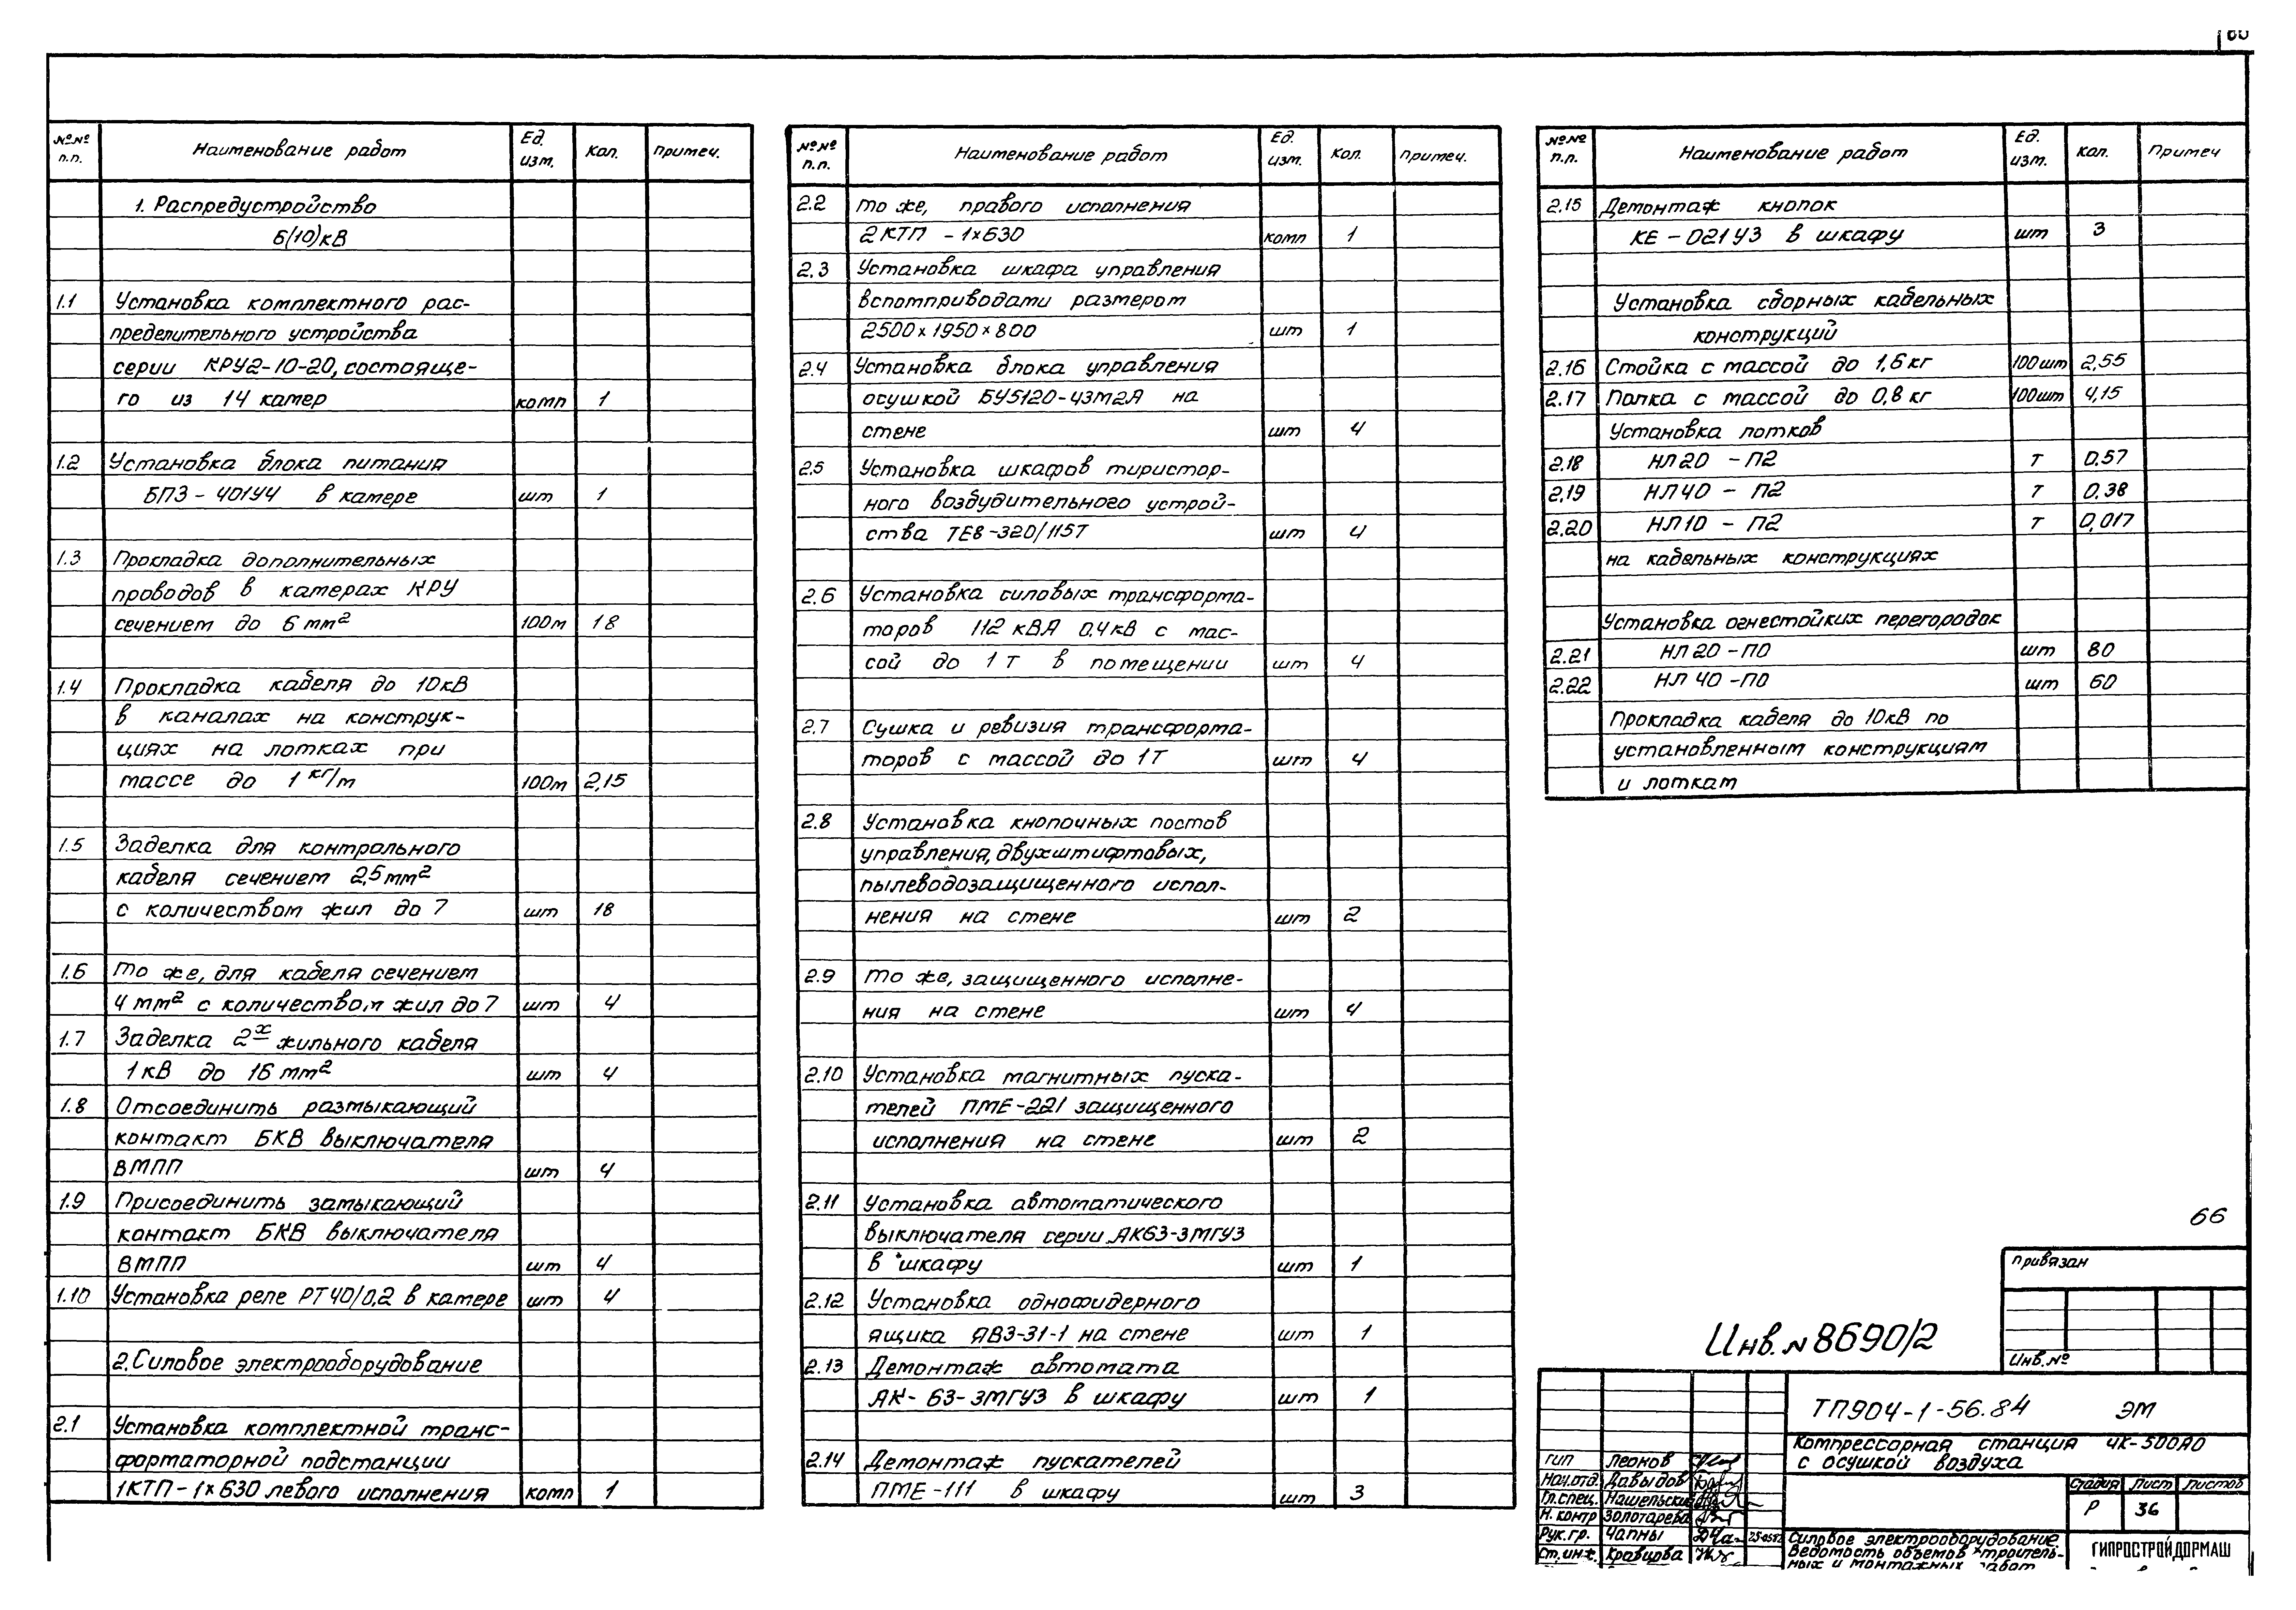 №№ п.п. Наименование работ Ед. изм. Кол. Примеч.
1. Распредустройство
6(10)кВ
1.1 Установка комплектного рас-
пределительного устройства
серии КРУ2-10-20, состояще-
го из 14 камер комп 1
1.2 Установка блока питания
БПЗ-401У4 в камере шт 1
1.3 Прокладка дополнительных
проводов в камерах КРУ
сечением до 6 мм² 100м 18
1.4 Прокладка кабеля до 10кВ
в каналах на конструк-
циях на лотках при
массе до 1 кг/м 100м 2,15
1.5 Заделка для контрольного
кабеля сечением 2,5 мм²
с количеством жил до 7 шт 18
1.6 То же, для кабеля сечением
4 мм² с количеством жил до 7 шт 4
1.7 Заделка 2х жильного кабеля
1кВ до 16 мм² шт 4
1.8 Отсоединить размыкающий
контакт БКВ выключателя
ВМПП шт 4
1.9 Присоединить замыкающий
контакт БКВ выключателя
ВМПП шт 4
1.10 Установка реле РТ40/0,2 в камере шт 4
2. Силовое электрооборудование
2.1 Установка комплектной транс-
форматорной подстанции
1КТП-1×630 левого исполнения комп 1
№№ п.п. Наименование работ Ед. изм. Кол. Примеч.
2.2 То же, правого исполнения
2КТП-1×630 комп 1
2.3 Установка шкафа управления
вспомприводами размером
2500×1950×800 шт 1
2.4 Установка блока управления
осушкой БУ5120-43М2А на
стене шт 4
2.5 Установка шкафов тиристор-
ного возбудительного устрой-
ства ТЕ8-320/115Т шт 4
2.6 Установка силовых трансформа-
торов 112 кВА 0.4кВ с мас-
сой до 1 Т в помещении шт 4
2.7 Сушка и ревизия трансформа-
торов с массой до 1Т шт 4
2.8 Установка кнопочных постов
управления, двухштифтовых,
пылеводозащищенного испол-
нения на стене шт 2
2.9 То же, защищенного исполне-
ния на стене шт 4
2.10 Установка магнитных пуска-
телей ПМЕ-221 защищенного
исполнения на стене шт 2
2.11 Установка автоматического
выключателя серии АК63-3МГУ3
в шкафу шт 1
2.12 Установка однофидерного
ящика ЯВЗ-31-1 на стене шт 1
2.13 Демонтаж автомата
АК-63-3МГУ3 в шкафу шт 1
2.14 Демонтаж пускателей
ПМЕ-111 в шкафу шт 3
№№ п.п. Наименование работ Ед. изм. Кол. Примеч
2.15 Демонтаж кнопок
КЕ-021У3 в шкафу шт 3
Установка сборных кабельных
конструкций
2.16 Стойка с массой до 1,6 кг 100шт 2,55
2.17 Полка с массой до 0,8 кг 100шт 4,15
Установка лотков
2.18 НЛ20-П2 Т 0.57
2.19 НЛ40-П2 Т 0.38
2.20 НЛ10-П2 Т 0,017
на кабельных конструкциях
Установка огнестойких перегородок
2.21 НЛ20-П0 шт 80
2.22 НЛ40-П0 шт 60
Прокладка кабеля до 10кВ по
установленным конструкциям
и лоткам
66
Привязан
Инв.№
Инв.№8690/2
ТП904-1-56.84 ЭМ
Компрессорная станция 4К-500АО
с осушкой воздуха
Стадия Лист Листов
Р 36
ГИП Леонов
Нач.отд. Давыдов
Гл.спец.
Н.контр Золотарева
Рук.гр. Чапны
Ст.инж. Кравцова
Силовое электрооборудование.
Ведомость объемов строитель-
ных и монтажных работ
ГИПРОСТРОЙДОРМАШ